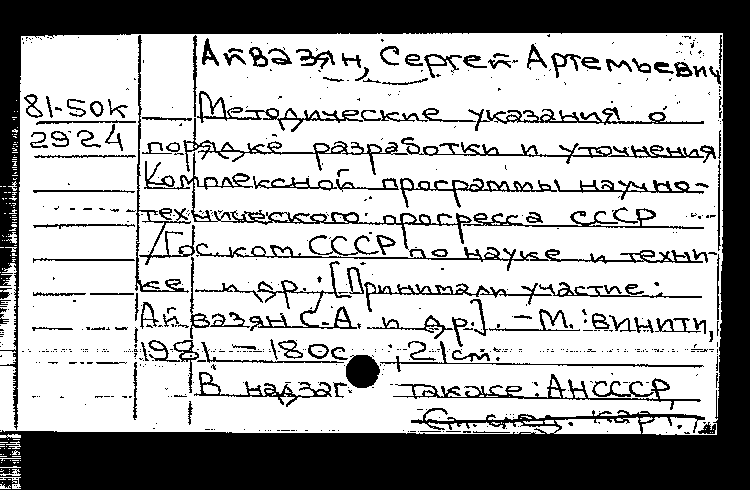 Айвазян, Сергей Артемьевич
81-50к
2924
Методические указания о
порядке разработки и уточнения
Комплексной программы научно-
технического прогресса СССР
/Гос. ком. СССР по науке и техни-
ке и др.; [Принимали участие:
Айвазян С.А. и др.]. – М.: ВИНИТИ,
1981. – 180с.; 21см.
В надзаг. также: АНСССР,
См. след. карт.